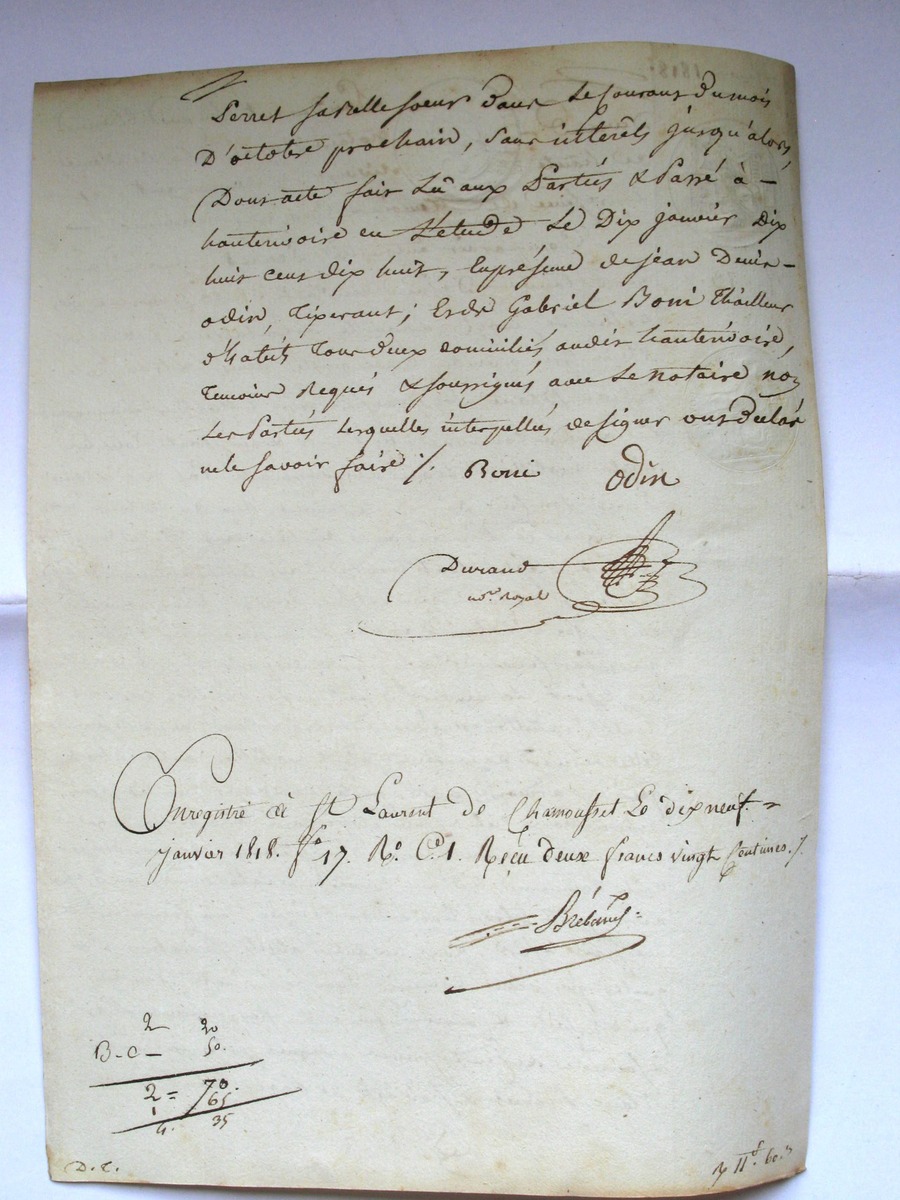 Perret sa belle soeur dans le courant du mois
D'octobre prochain, sans intérêts jusqu'alors,
Dont acte fait Lû aux Parties & Passé à –
hauterivoire en L'etude Le Dix janvier Dix
huit cent dix huit, En présence de jean Denis –
odin, Tixerant; Et de Gabriel Boni Thailleur
d'habits Tous deux domiciliés audit hauterivoire,
Temoins Requis & soussignés avec Le notaire non
Les Parties Lesquelles interpellées de signer ont Déclaré
ne le savoir faire /.
Boni Odin
Durand
no.re Royal
Enregistré à St Laurent de Chamousset Le dix neuf =
janvier 1818. f.o 17. R.o C.e 1. Reçu deux francs vingt Centimes. /.
2 20
B - C - 50.
2 = 70.
1 65
4. 35
D. T.
11 60